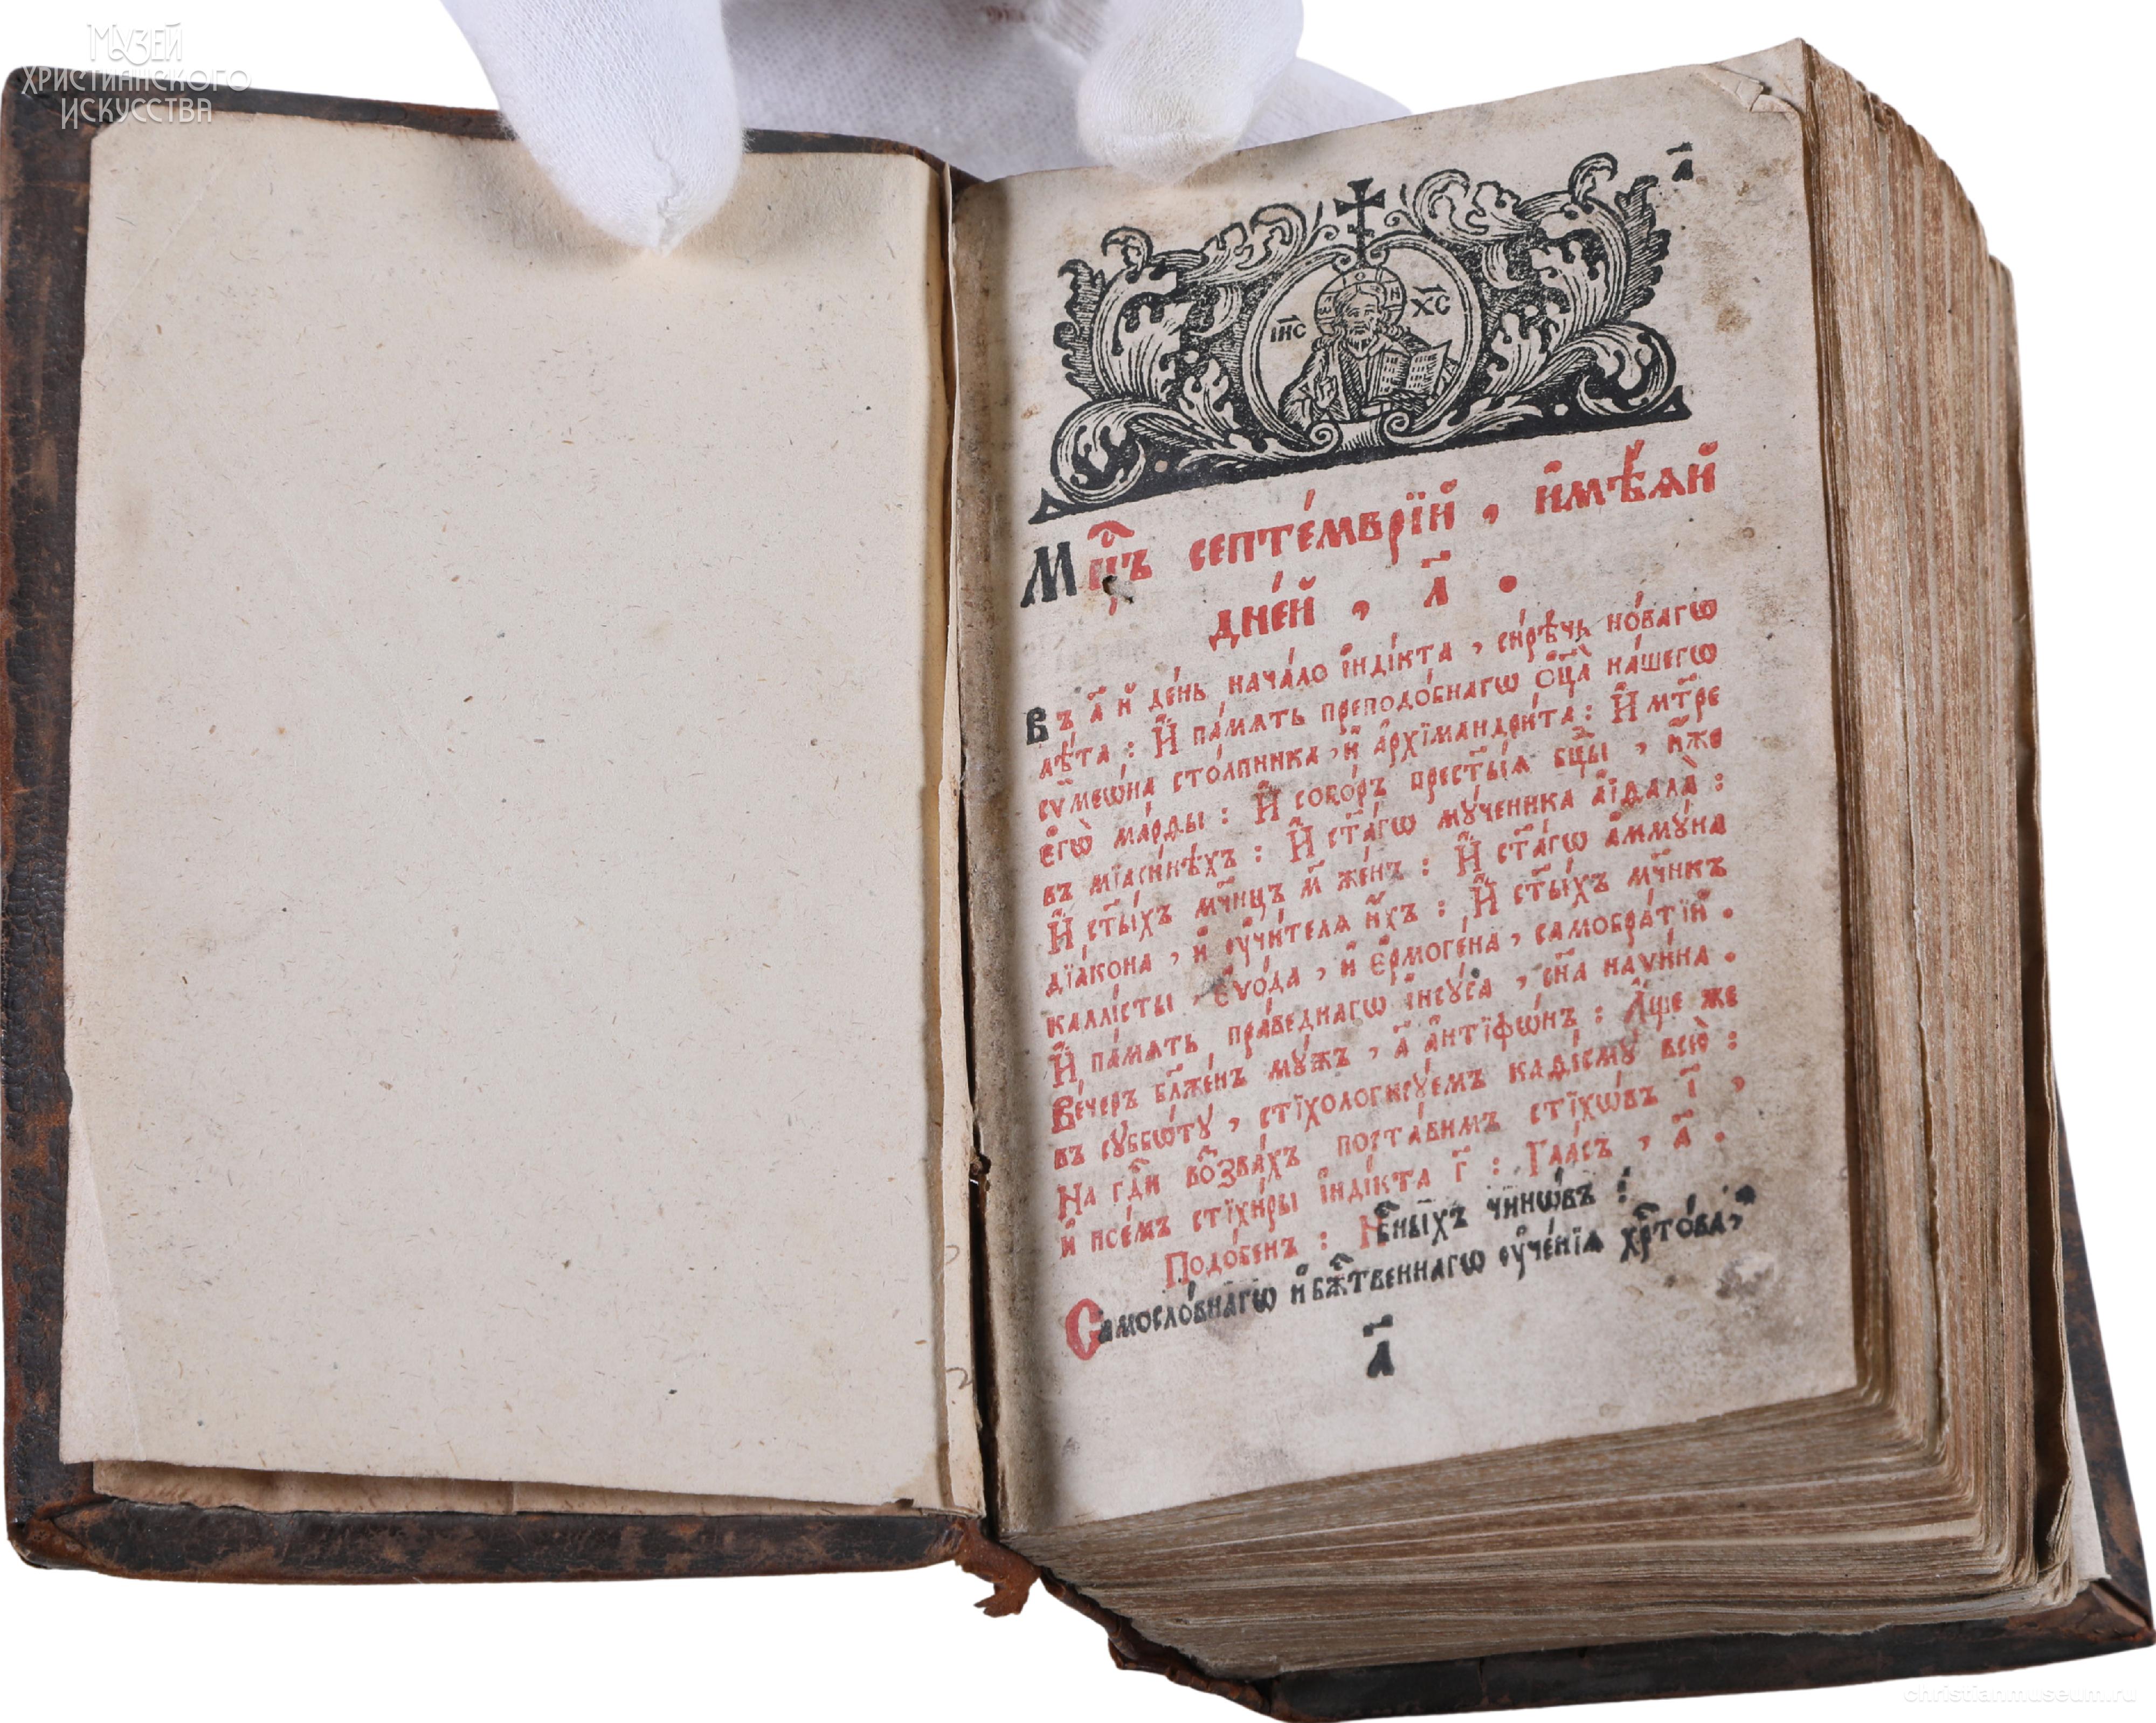 МУЗЕЙ
ХРИСТИАНСКОГО
ИСКУССТВА
а҃
І҆И҃С Х҃С
Мц҃ъ септе́мврїй , и҆мѣ́ѧй
дне́й , л҃ .
Въ а҃ й де́нь нача́ло і҆ндї́кта , си́рѣчь но́вагѡ
лѣ́та : И҆ па́мѧть преподо́бнагѡ ѻ҆ц҃а̀ на́шегѡ
сѷмеѡ́на сто́лпника , и҆ а҆рхїмандри́та : И҆ мт҃ре
є҆гѡ̀ ма́рѳы : И҆ собо́ръ прест҃ы́ѧ бц҃ы , и҆́же
въ мїаси́нѣхъ : И҆ ст҃а́гѡ мꙋ́ченика а҆іѳала̀ :
И҆ ст҃ы́хъ мч҃ницъ м҃ же́нъ : И҆ ст҃а́гѡ а҆ммꙋ́на
дїа́кона , и҆ ᲂу҆чи́телѧ и҆́хъ : И҆ ст҃ы́хъ мч҃никъ
каллі́сты , є҆ѵо́да , и҆ є҆рмоге́на , самобра́тїй .
И҆ па́мѧть пра́веднагѡ і҆исꙋ́са , сн҃а наѵи́на .
Ве́черъ бл҃же́нъ мꙋ́жъ , а҃ а҆нтїфѡ́нъ : А҆́ще же
въ сꙋббѡ́тꙋ , стїхологисꙋ́емъ каѳі́смꙋ всю̀ :
На гд҇и воззва́хъ поста́вимъ стїхѡ́въ і҃ ,
и҆ пое́мъ стїхи́ры і҆ндї́кта г҃ : Гла́съ , а҃ .
Подо́бенъ : Нб҇ны́хъ чинѡ́въ :
Самосло́внагѡ и҆ бж҇твеннагѡ ᲂу҆че́нїѧ хрⷭ҇то́ва ,
а҃
christianmuseum.ru